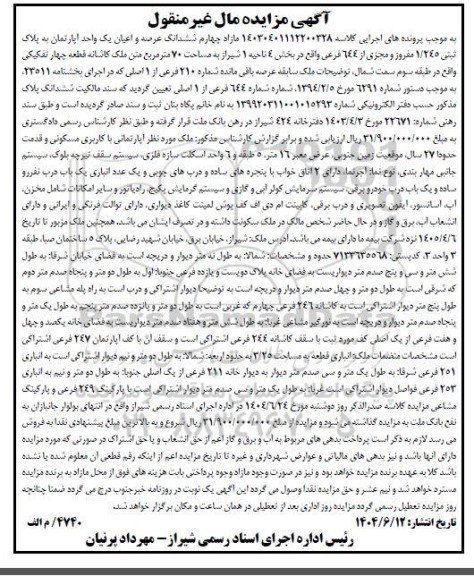 آگهی مزایده مال غیر منقول
به موجب پرونده های اجرایی کلاسه ۱۴۰۳۰۴۰۱۱۱۲۲۰۰۳۲۸ مازاد چهارم ششدانگ عرصه و اعیان یک واحد آپارتمان به پلاک
ثبتی ۱/۲۴۵ مفروز و مجزی از ۶۴۴ فرعی واقع در بخش ۴ ناحیه ۱ شیراز به مساحت ۷۰ مترمربع متن ملک کاشانه قطعه چهار تفکیکی
واقع در طبقه سوم سمت شمال، توضیحات ملک سابقه عرصه باقی مانده شماره ۲۱۰ فرعی از ۱ اصلی که در اجرای بخشنامه ۲۳۵۱۱،
به موجب دستور شماره ۶۲۹۱ مورخ ۱۳۹۴/۲/۵، شماره ۶۴۴ فرعی از ۱ اصلی تعیین گردید که سند مالکیت ششدانگ پلاک
مذکور حسب دفتر الکترونیکی شماره ۱۳۹۹۲۰۳۱۱۰۰۱۰۱۵۲۹۳ به نام خانم پگاه بنان ثبت و سند صادر گردیده است و طبق سند
رهنی شماره: ۲۲۶۷۱ مورخ ۱۴۰۳/۴/۳ دفترخانه ۴۲۴ شیراز در رهن بانک ملت قرار گرفته و طبق نظر کارشناس رسمی دادگستری
به مبلغ ۳۱/۹۰۰/۰۰۰/۰۰۰ ریال ارزیابی شده و برابر گزارش کارشناس مذکور: ملک مورد نظر آپارتمانی با کاربری مسکونی و قدمت
حدودا ۲۷ سال، موقعیت زمین جنوبی، عرض معبر ۱۶ متر، ۵ طبقه و ۶ واحد اسکلت سازه فلزی، سیستم سقف تیرچه بلوک، سیستم
جانبی مهار بندی، نوع نما: آجرنما، دارای ۲ اتاق خواب با پنجره های ساده و درب های چوبی و یک عدد انباری یک باب درب نفررو
ساده و یک باب درب خودرو برقی، سیستم سرمایش کولر آبی و گازی و سیستم گرمایش پکیج، رادیاتور و سایر امکانات شامل مخزن،
آب، آسانسور، آیفون تصویری و درب برقی، کابینت ام دی اف کف پوش لمینت کاغذ دیواری، دارای توالت فرنگی و ایرانی و دارای
انشعاب آب، برق و گاز و در حال حاضر شخص مالک در ملک سکونت داشته و در تصرف ایشان می باشد. همچنین ملک مزبور تا تاریخ
۱۴۰۵/۴/۶ نزد شرکت بیمه ما دارای بیمه می باشد. آدرس ملک: شیراز، خیابان برق، خیابان شهید رضایی، پلاک ۵ ساختمان صبا، طبقه
۳ واحد ۳، کدپستی: ۷۱۳۳۶۳۵۵۶۸ حدود و مشخصات: شمالا: به طول نه متر دیوار و دریچه است به فضای خیابان شرقا: به طول
شش متر و سی و پنج صدم متر دیواریست به فضای خانه پلاک دویست و یازده فرعی جنوبا: اول به طول دو متر و پنجاه صدم متر دوم
که شرقی است به طول دو متر و چهل صدم متر دیوار و دریچه است به توضیحا دیوار اشتراکی و درب است به راه پله مشاعی سوم به
طول پنج متر دیوار اشتراکی است به کاشانه ۲۴۶ فرعی چهارم که غربی است به طول دو متر و پانزده صدم متر پنجم به طول یک متر و
پنجاه صدم متر دیوار و دریچه است به نورگیر مشاعی غربا: به طول شش متر و هفتاد صدم متر دیواریست به فضای خانه یکصد و چهل
و هفت فرعی از یک اصلی کف مورد ثبت با سقف کاشانه ۲۴۴ فرعی اشتراکی است و سقف آن با کف آپارتمان ۲۴۷ فرعی اشتراکی
است مشخصات منضمات ملک: انباری قطعه به مساحت ۳/۲۵ به حدود اربعه: شمالا: به طول دو متر و نیم دیوار اشتراکی است به انباری
۲۵۱ فرعی شرقا: به طول یک متر و سی صدم متر دیوار به دیوار خانه ۲۱۱ فرعی از یک اصلی جنوبا: به طول دو متر و نیم به انباری
۲۵۳ فرعی فواصل دیوار اشتراکی است غربا: به طول یک متر و سی صدم متر دیوار اشتراکی است با پارکینگ ۲۴۹ فرعی و پارکینگ
مشاعی مزایده کلاسه صدرالذکر روز دوشنبه مورخ ۱۴۰۴/۶/۲۴ در اداره اجرای اسناد رسمی شیراز واقع در انتهای بولوار جانبازان به
نفع بانک ملت به مزایده گذاشته می شود و مزایده از مبلغ ۳۱/۹۰۰/۰۰۰/۰۰۰ ریال شروع و به بالاترین مبلغ پیشنهادی نقدا به فروش
می رسد لازم به ذکر است پرداخت بدهی های مربوط به آب و برق و گاز اعم از حق انشعاب و یا حق اشتراک در صورتی که مورد مزایده
دارای آنها باشد و نیز بدهی های مالیاتی و عوارض شهرداری و غیره تا تاریخ مزایده اعم از اینکه رقم قطعی آن معلوم شده یا نشده
باشد کلا به عهده برنده مزایده خواهد بود و نیز در صورت وجود مازاد وجوه پرداختی بابت هزینه های فوق از محل مازاد به برنده مزایده
مسترد خواهد شد و نیم عشر و حق مزایده نقدا وصول می گردد این آگهی یک نوبت در روزنامه خبرجنوب درج می گردد ضمنا چنانچه
روز مزایده تعطیل رسمی گردد مزایده روز اداری بعد از تعطیلی در همان ساعت و مکان برگزار خواهد شد.
تاریخ انتشار: ۱۴۰۴/۶/۱۲
۴۷۴۰/م الف
رئیس اداره اجرای اسناد رسمی شیراز - مهرداد پرنیان